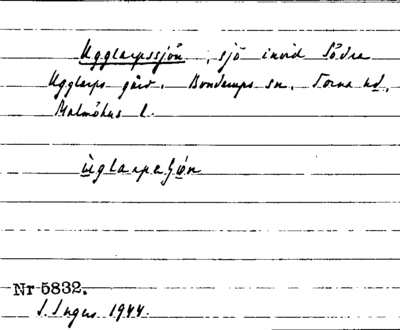 Ugglarpssjön, sjö invid Södra
Ugglarps gård. Bonderups sn. Torna hd.
Malmöhus l.
ùglarpaʃǿn
Nr 5832.
S. Ingers 1944.